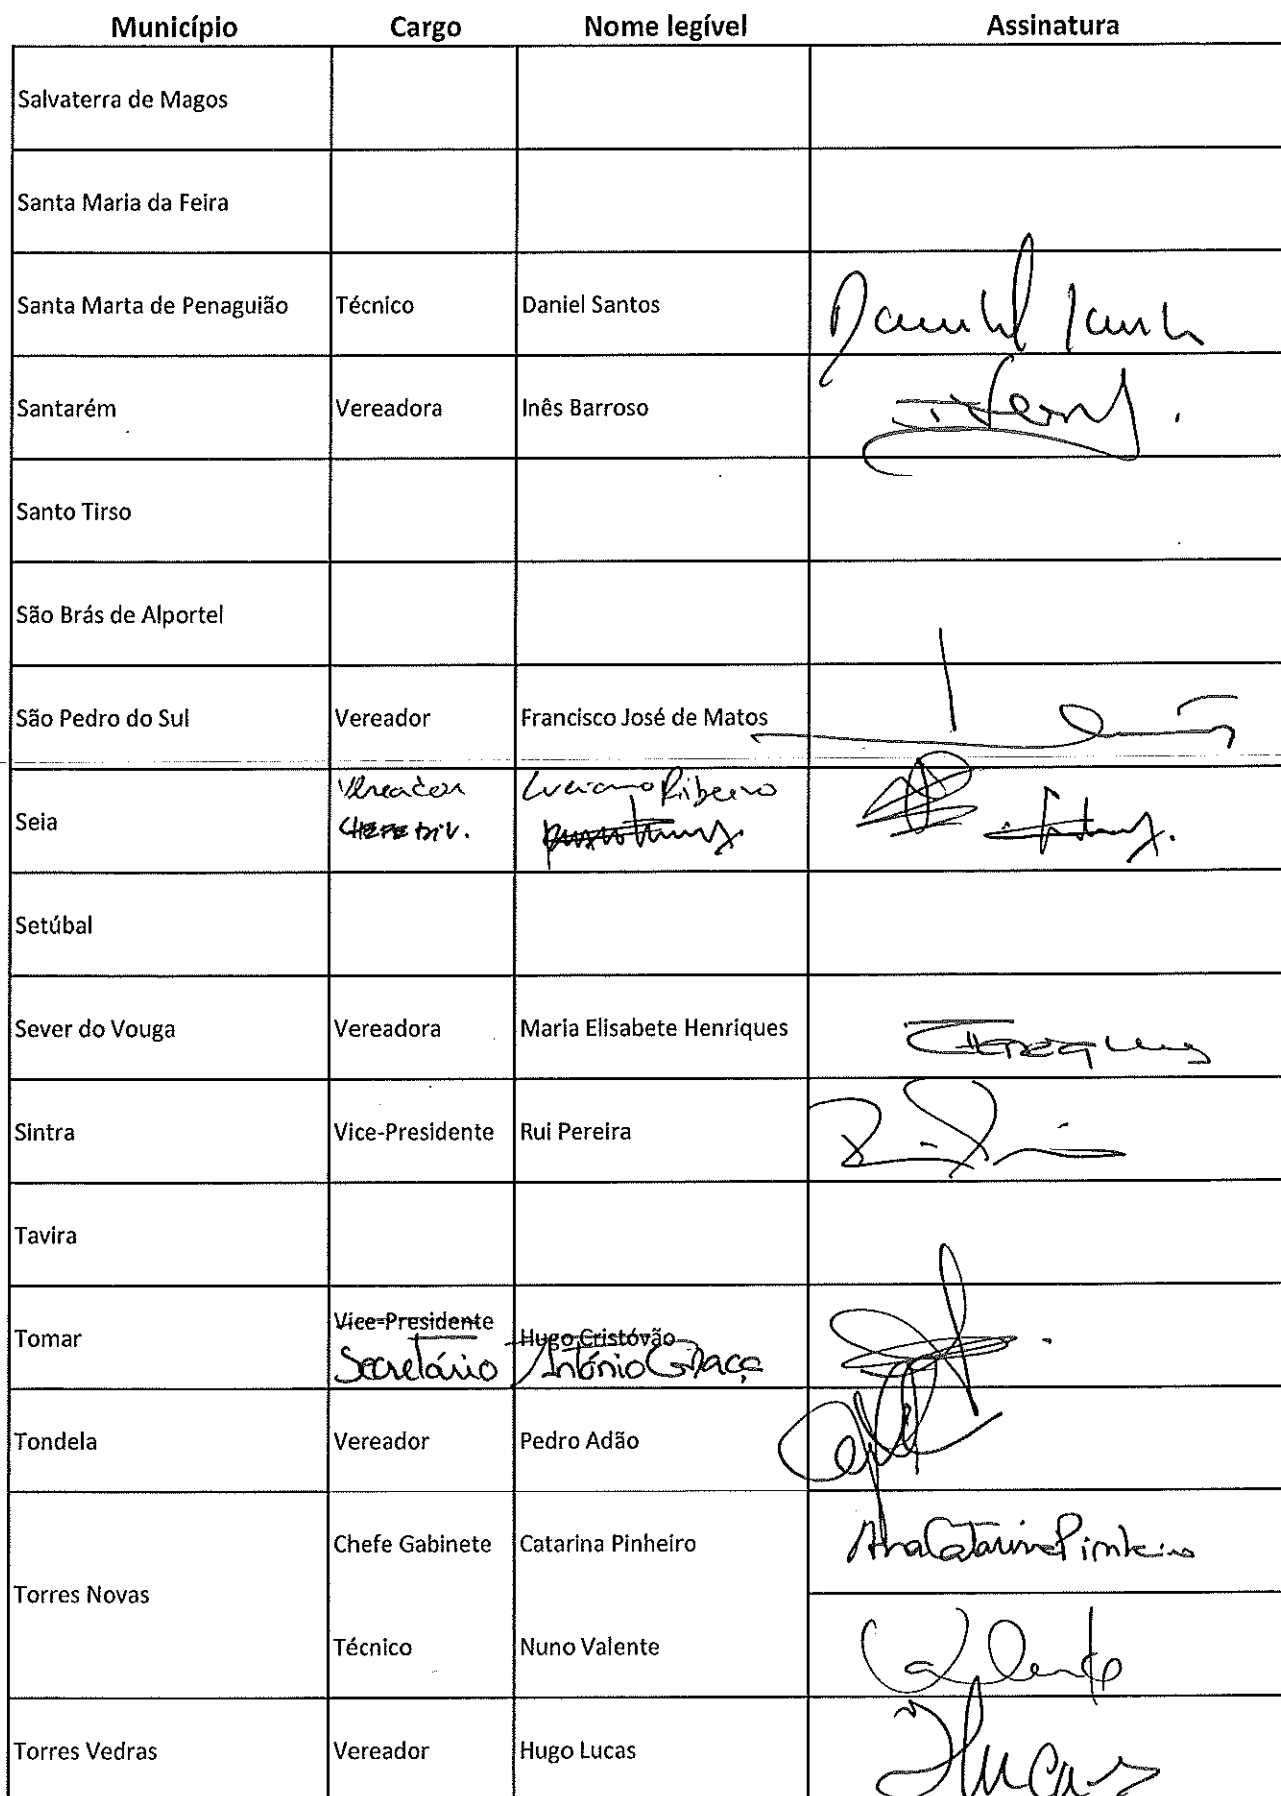 Município Cargo Nome legível Assinatura
Salvaterra de Magos
Santa Maria da Feira
Santa Marta de Penaguião Técnico Daniel Santos
Santarém Vereadora Inês Barroso
Santo Tirso
São Brás de Alportel
São Pedro do Sul Vereador Francisco José de Matos
Vereador Luciano Ribeiro
Seia
CHEFE DIV.
Setúbal
Sever do Vouga Vereadora Maria Elisabete Henriques
Sintra Vice-Presidente Rui Pereira
Tavira
Vice-Presidente
Tomar Hugo Cristóvão
Secretário António Graça
Tondela Vereador Pedro Adão
Chefe Gabinete Catarina Pinheiro Ana Catarina Pinheiro
Torres Novas
Técnico Nuno Valente
Torres Vedras Vereador Hugo Lucas